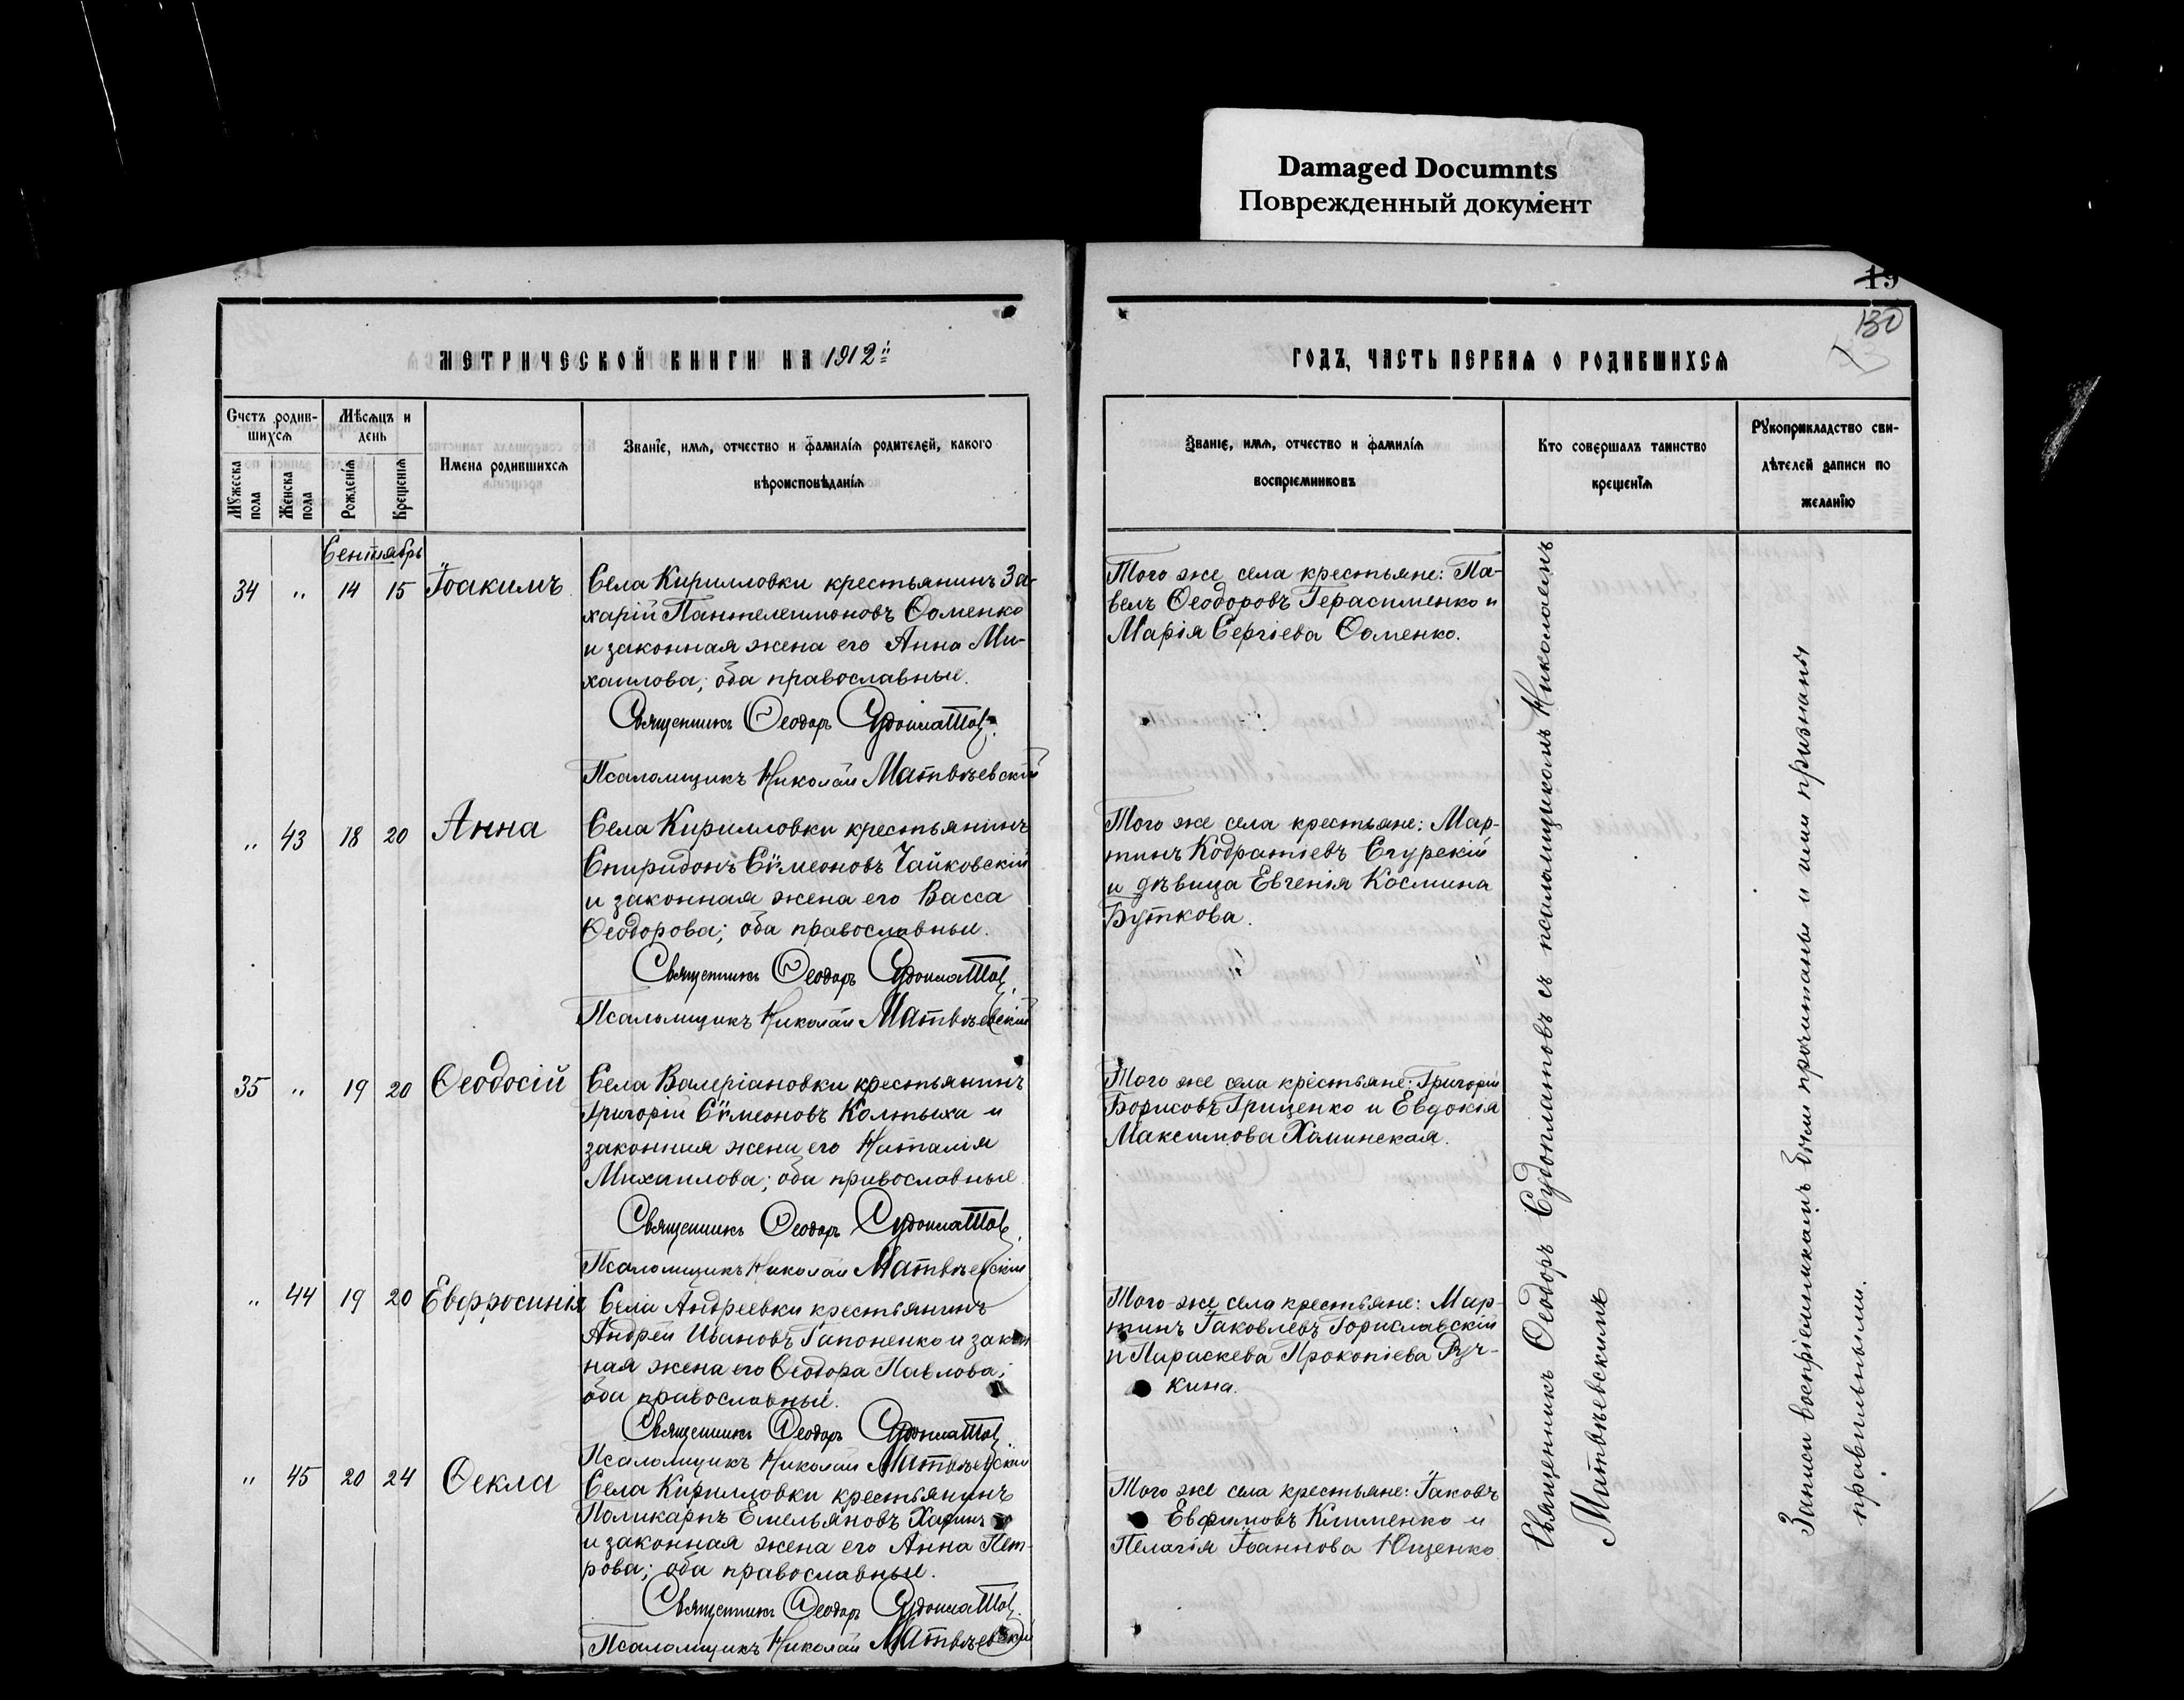 Damaged Documnts
Поврежденный документ
19
130
МЕТРИЧЕСКОЙ КНИГИ НА 1912й
ГОДЪ, ЧАСТЬ ПЕРВАЯ О РОДИВШИХСЯ
Счетъ родив-
шихся
Мѣсяцъ и
день
Мужеска пола
Женска пола
Рожденія
Крещенія
Имена родившихся
Званіе, имя, отчество и фамилія родителей, какого
вѣроисповѣданія
Званіе, имя, отчество и фамилія
воспріемниковъ
Кто совершалъ таинство
крещенія
Рукоприкладство сви-
дѣтелей записи по
желанію
Сентябрь
34 „ 14 15 Іоакимъ
Села Кирилловки крестьянинъ За-
харій Пантелеимоновъ Ѳоменко
и законная жена его Анна Ми-
хаилова; оба православные.
Священникъ Ѳеодоръ Судоплатовъ
Псаломщикъ Николай Матвѣевскій
Того же села крестьяне: Па-
велъ Ѳеодоровъ Герасименко и
Марія Сергіева Ѳоменко.
„ 43 18 20 Анна
Села Кирилловки крестьянинъ
Спиридонъ Сѵмеоновъ Чайковскій
и законная жена его Васса
Ѳеодорова; оба православные.
Священникъ Ѳеодоръ Судоплатовъ
Псаломщикъ Николай Матвѣевскій
Того же села крестьяне: Мар-
тинъ Кодратіевъ Сгурскій
и дѣвица Евгенія Космина
Буткова.
35 „ 19 20 Ѳеодосій
Села Валеріановки крестьянинъ
Григорій Сѵмеоновъ Колтыха и
законная жена его Наталія
Михаилова; оба православные
Священникъ Ѳеодоръ Судоплатовъ
Псаломщикъ Николай Матвѣевскій
Того же села крестьяне: Григорій
Борисовъ Гриценко и Евдокія
Максимова Хаминская.
„ 44 19 20 Евфросинія
Села Андреевки крестьянинъ
Андрей Ивановъ Гапоненко и закон
ная жена его Ѳеодора Павлова;
оба православные.
Священникъ Ѳеодоръ Судоплатовъ
Псаломщикъ Николай Матвѣевскій
Того же села крестьяне: Мар-
тинъ Іаковлевъ Гориславскій
и Параскева Прокопіева Руч-
кина.
„ 45 20 24 Ѳекла
Села Кирилловки крестьянинъ
Поликарпъ Емельяновъ
и законная жена его Анна Пет-
рова; оба православные.
Священникъ Ѳеодоръ Судоплатовъ
Псаломщикъ Николай Матвѣевскій
Того же села крестьяне: Іаковъ
Евфимовъ Клименко и
Пелагія Іоаннова Ющенко
Священникъ Ѳеодоръ Судоплатовъ съ псаломщикомъ Николаемъ
Матвѣевскимъ
Записи воспріемникамъ были прочитаны и ими признаны
правильными.